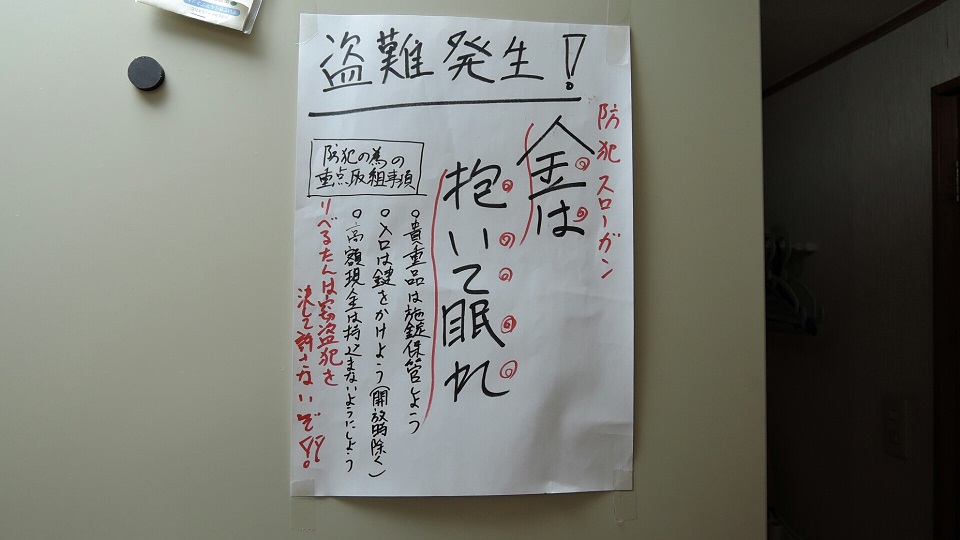 盗難発生!
防犯スローガン
金は
抱いて眠れ
防犯の為の
重点取組事項
○貴重品は施錠保管しよう
○入口は鍵をかけよう(開放時除く)
○高額現金は持込まないようにしよう
りべるたんは窃盗犯を
決して許さないぞ!!